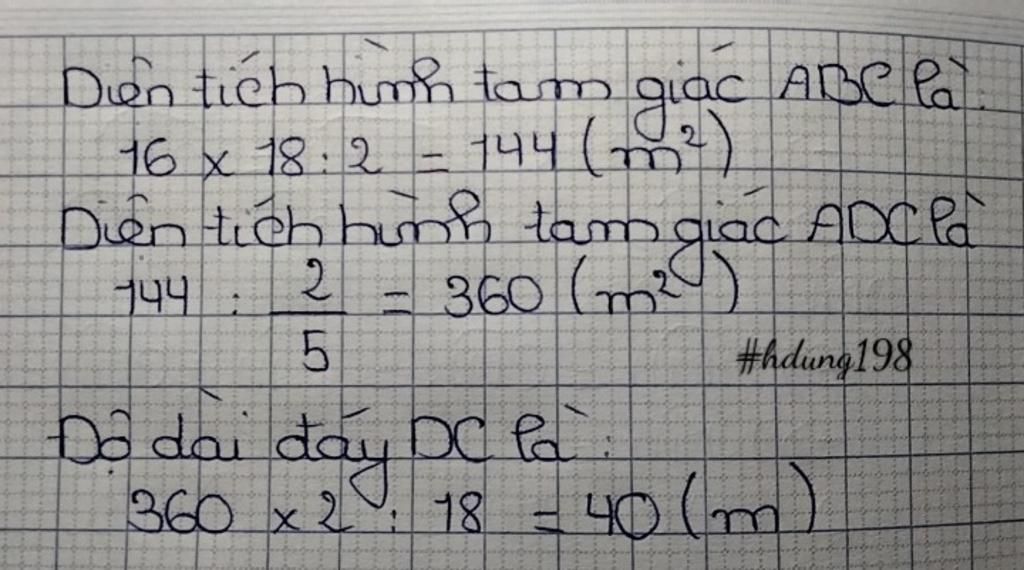 Diện tích hình tam giác ABC là:
16 x 18 : 2 = 144 (m²)
Diện tích hình tam giác ADC là
144 : 2/5 = 360 (m²)
#hdung198
Độ dài đáy DC là:
360 x 2 : 18 = 40 (m)